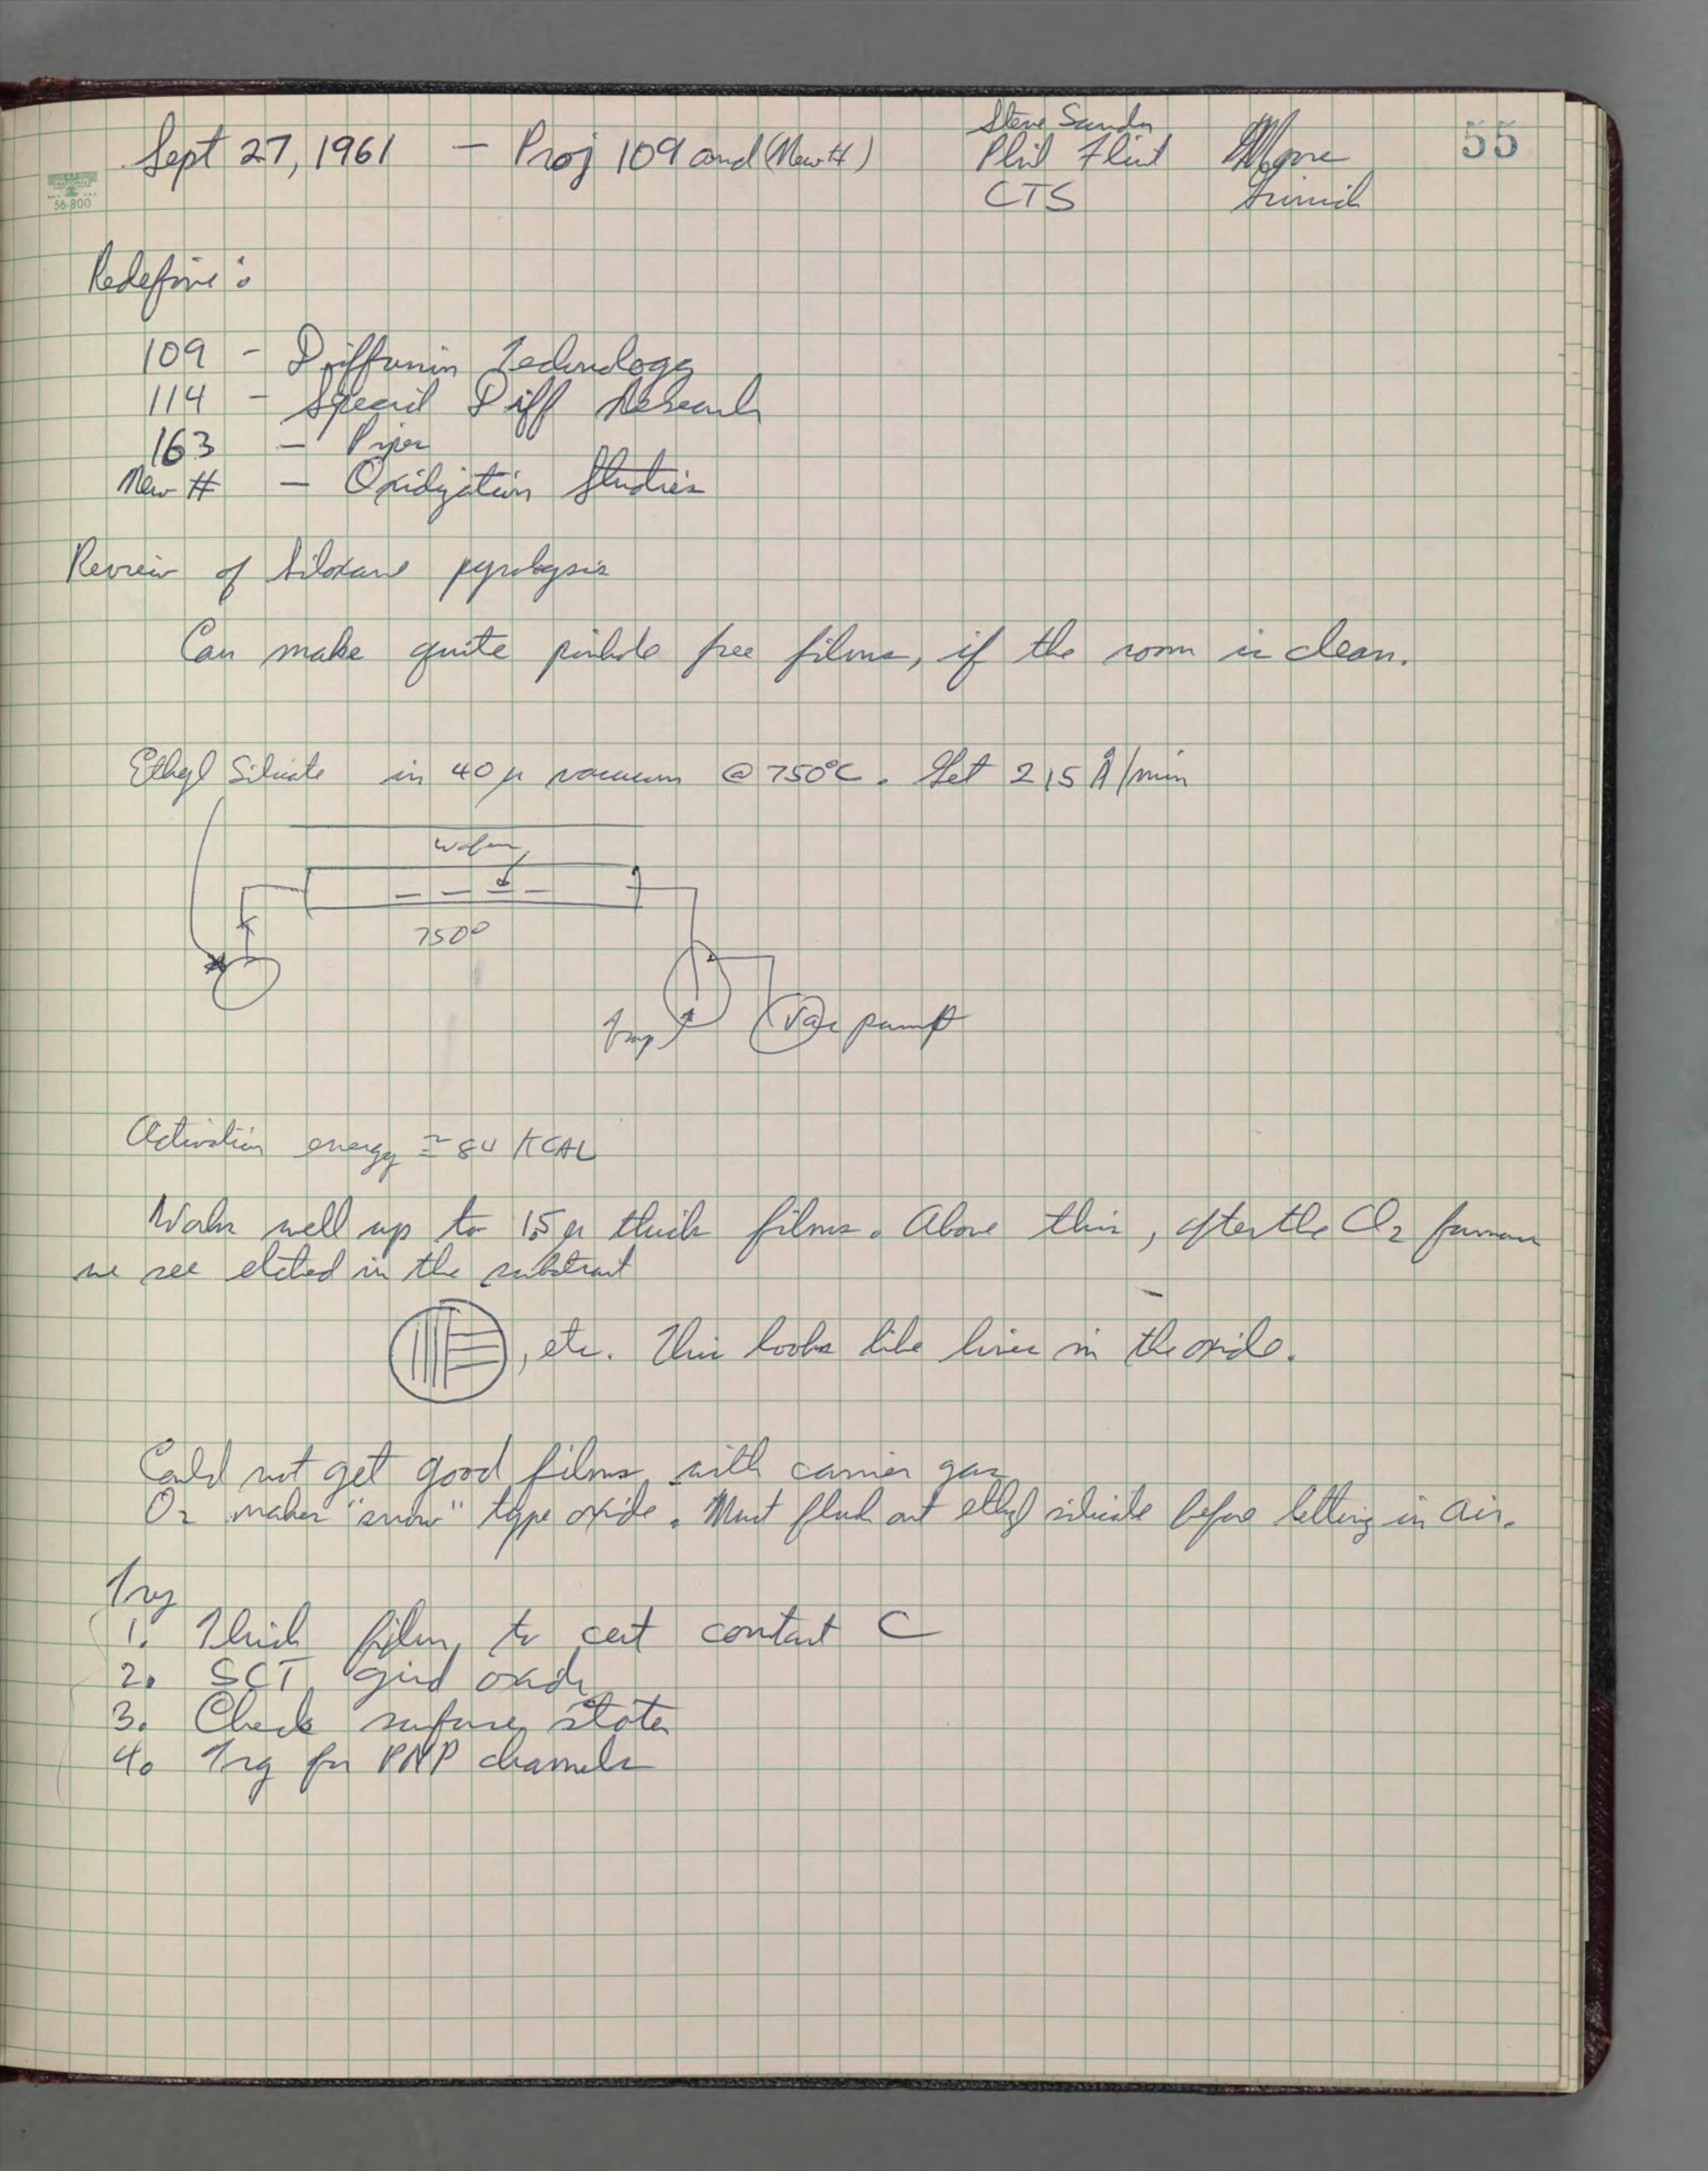 Sept 27, 1961 — Proj 109 and (New #)
Steve
Phil Flint
CTS
Moore
55
56-800
Redefine:
109 - Diffusion Technology
114 - Special Diff Research
163 -
New # - Oxidization Studies
Review of Siloxane pyrolysis
Can make quite pinhole free films, if the room is clean.
Ethyl Silicate in 40 μ vacuum @ 750°C. Get 215 Å/min
wafers
750°
trap
Vac pump
Activation energy ≅ 84 KCAL
Works well up to 1.5 μ thick films. Above this, after the Cl2 furnace
we see etched in the substrate
, etc. This looks like lines in the oxide.
Could not get good films with carrier gas
O2 makes "snow" type oxide. Must flush out ethyl silicate before letting in air.
Try
1. Thick films to cut contact C
2. SCT grid oxide
3. Check surface states
4. Try for PNP channels